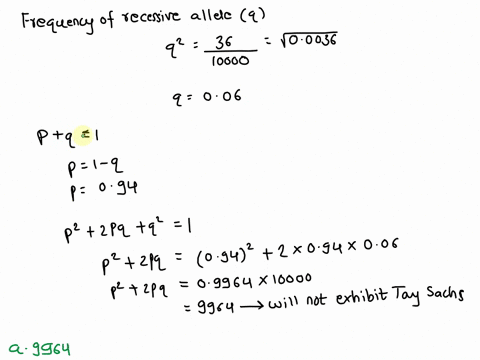 Frequency of recessive allele (q)
q² = 36/10000 = √0.0036
q = 0.06
P + q = 1
p = 1 - q
p = 0.94
p² + 2pq + q² = 1
p² + 2pq = (0.94)² + 2 × 0.94 × 0.06
p² + 2pq = 0.9964 × 10000
= 9964 → will not exhibit Tay Sachs
a. 9964